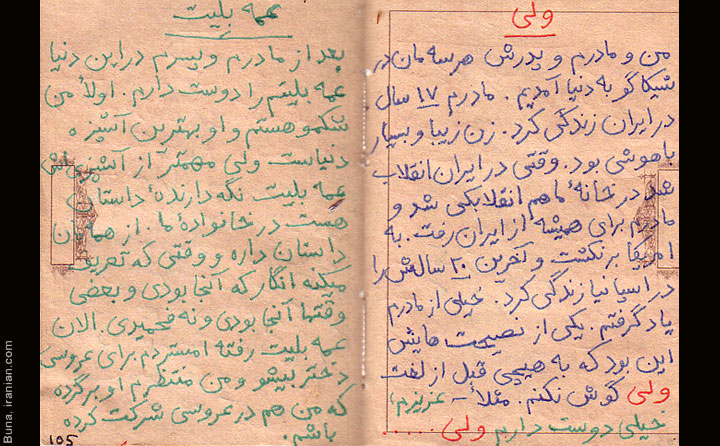 ولی
من و مادرم و پدرش هر سه مان در
شیکاگو به دنیا آمدیم. مادرم ۱۷ سال
در ایران زندگی کرد. زن زیبا و بسیار
باهوشی بود. وقتی در ایران انقلاب
شد در خانهٔ ما هم انقلابکی شد و
مادرم برای همیشه از ایران رفت. به
امریکا برنگشت و آخرین ۲۰ سالش را
در اسپانیا زندگی کرد. خیلی از مادرم
یاد گرفتم. یکی از نصیحت هایش
این بود که به هیچی قبل از لغت
ولی گوش نکنم. مثلاً - عزیزم،
خیلی دوست دارم ولی .....
عمه بلیت
بعد از مادرم و پسرم در این دنیا
عمه بلیتم را دوست دارم. اولاً من
شکمو هستم و او بهترین آشپزه
دنیاست ولی مهمتر از آشپزیش
عمه بلیت نگه دارندهٔ داستان
هست در خانوادهٔ ما. از همه مان
داستان داره و وقتی که تعریف
میکنه انگار که آنجا بودی و بعضی
وقتها آنجا بودی و نه فحمیدی. الان
عمه بلیت رفته امستردم برای عروسی
دختر بیشو و من منتظرم او برگرده
که من هم در عروسی شرکت کرده
باشم.
105
Buna, iranian.com